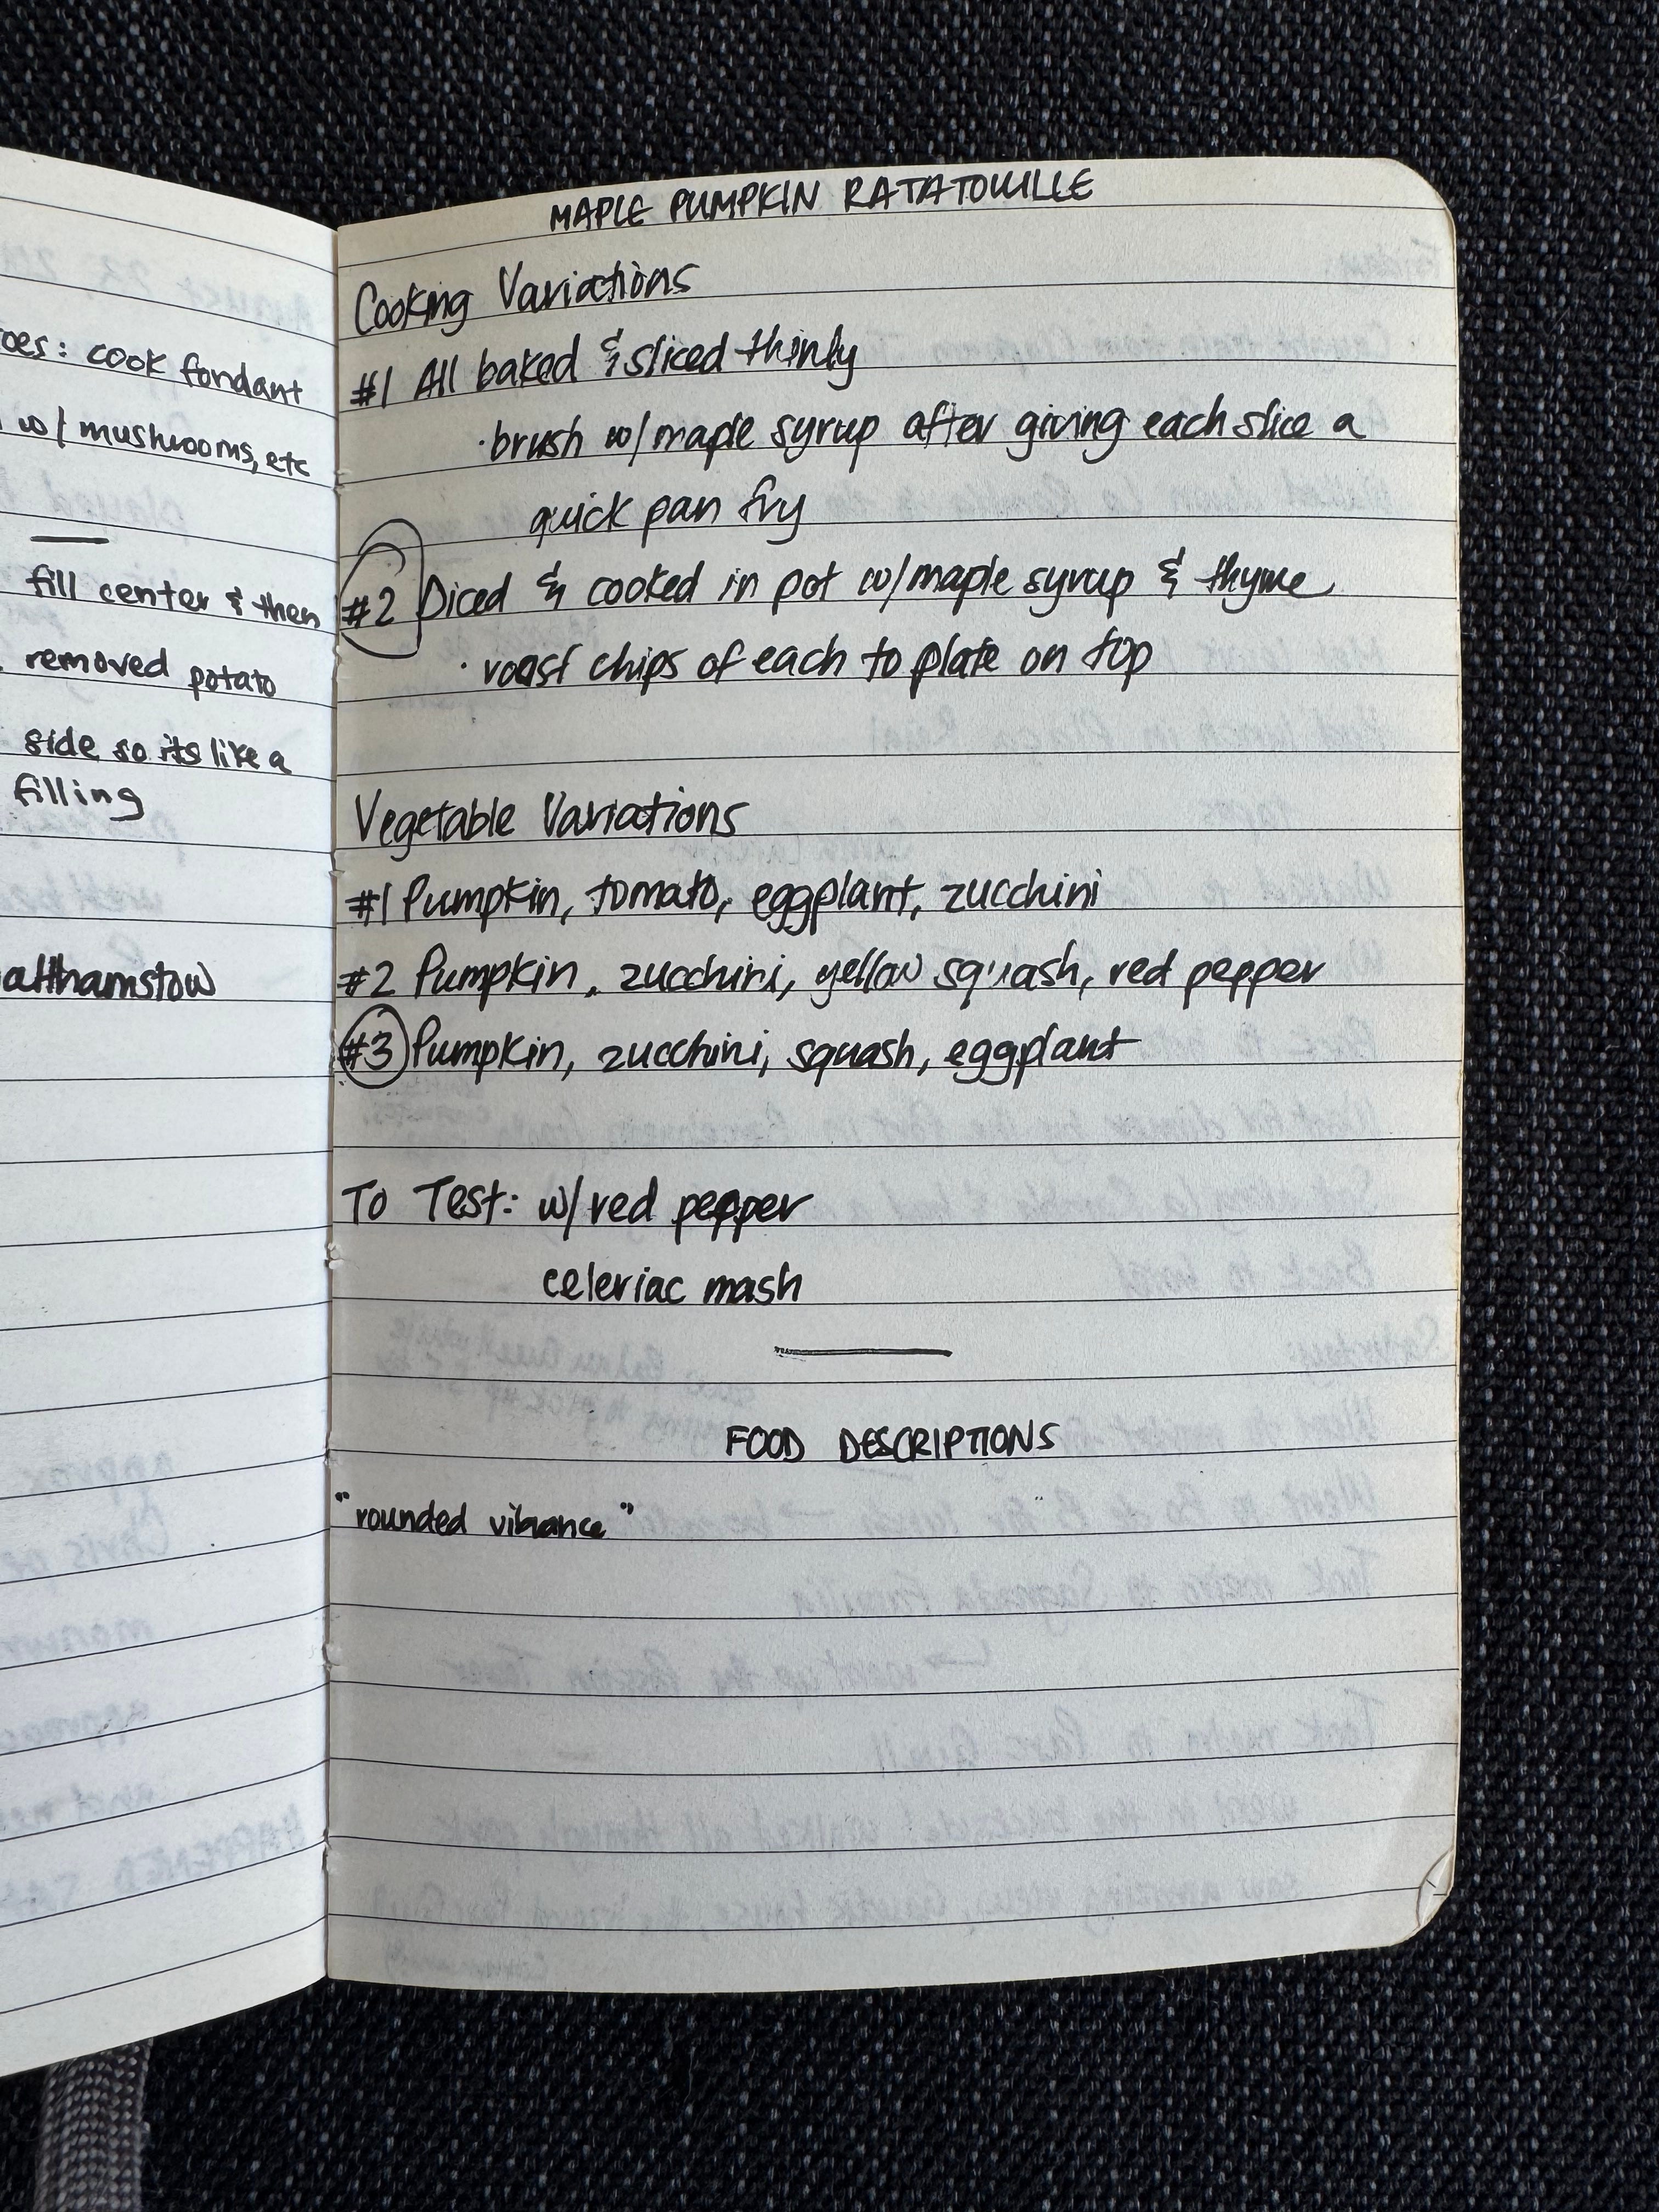 oes: cook fondant
w/ mushrooms, etc
fill center & then
removed potato
side so its like a
filling
althamstow
MAPLE PUMPKIN RATATOUILLE
Cooking Variations
#1 All baked & sliced thinly
·brush w/ maple syrup after giving each slice a
quick pan fry
#2 Diced & cooked in pot w/ maple syrup & thyme
· roast chips of each to plate on top
Vegetable Variations
#1 Pumpkin, tomato, eggplant, zucchini
#2 Pumpkin, zucchini, yellow squash, red pepper
#3 Pumpkin, zucchini, squash, eggplant
To Test: w/ red pepper
celeriac mash
FOOD DESCRIPTIONS
"rounded vibrance"